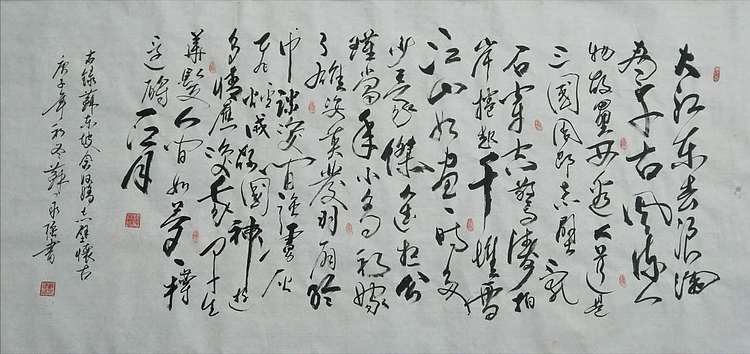 大江东去浪淘
尽千古风流人
物故垒西边人道是
三國周郎赤壁乱
石穿空惊涛拍
岸捲起千堆雪
江山如画一时多
少豪傑遥想公
瑾当年小乔初嫁
了雄姿英發羽扇纶
巾谈笑间强虏灰
飞烟灭故國神游
多情应笑我早生
華髮人间如梦一樽
还酹江月
右录苏东坡念奴娇赤壁怀古
庚子年初冬苏永强书